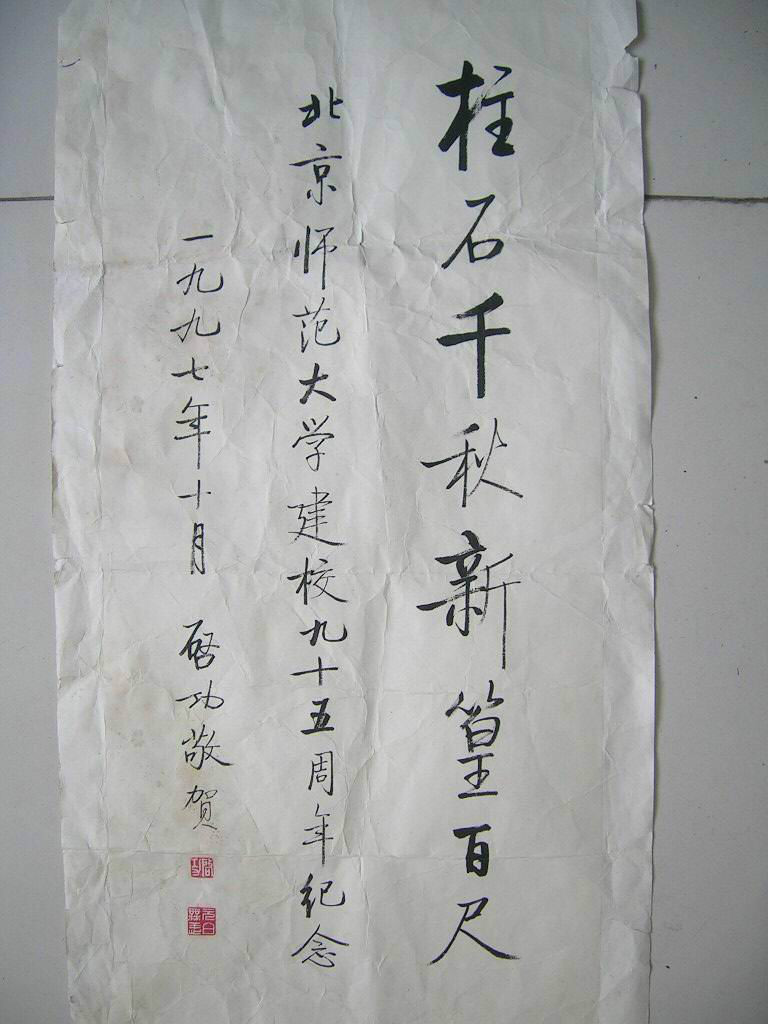 柱石千秋新篁百尺
北京师范大学建校九十五周年纪念
一九九七年十月 启功敬贺